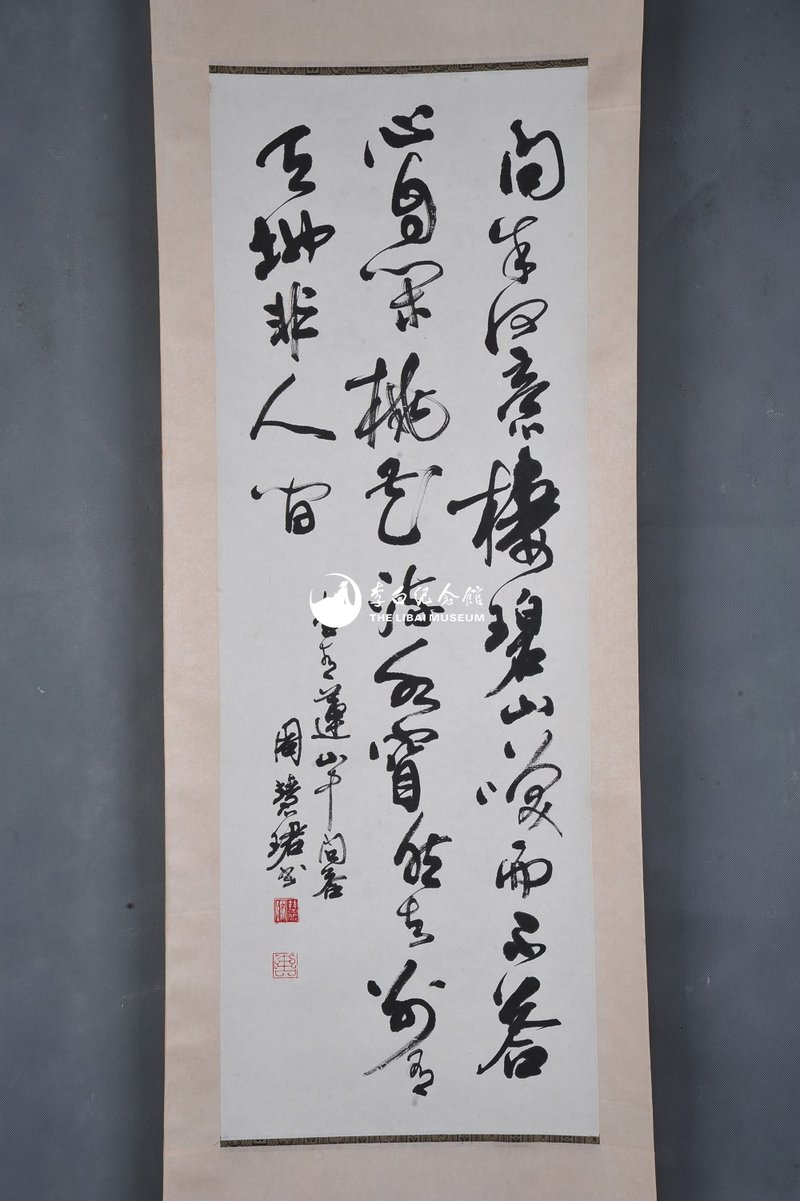 问余何意栖碧山笑而不答
心自闲桃花流水窅然去别有
天地非人间
李青莲山中问答
周慧珺书
李白纪念館
THE LIBAI MUSEUM